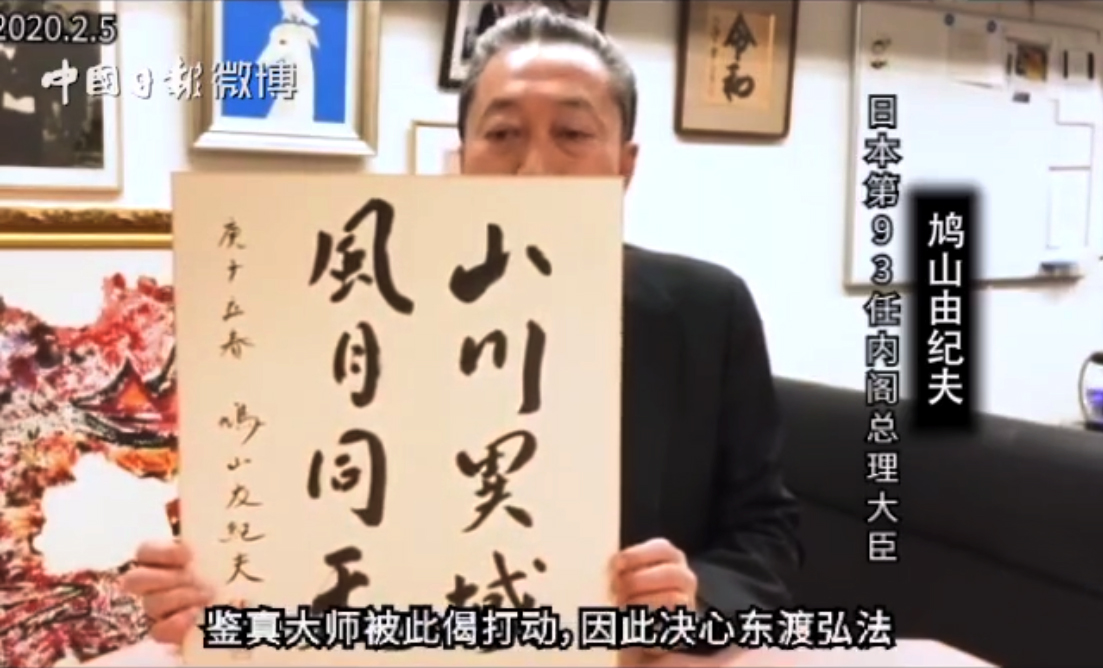 2020.2.5
中國日报微博
令和
日本第93任内阁总理大臣
鸠山由纪夫
山川異域
風月同天
庚子立春 鳩山友紀夫
鉴真大师被此偈打动,因此决心东渡弘法